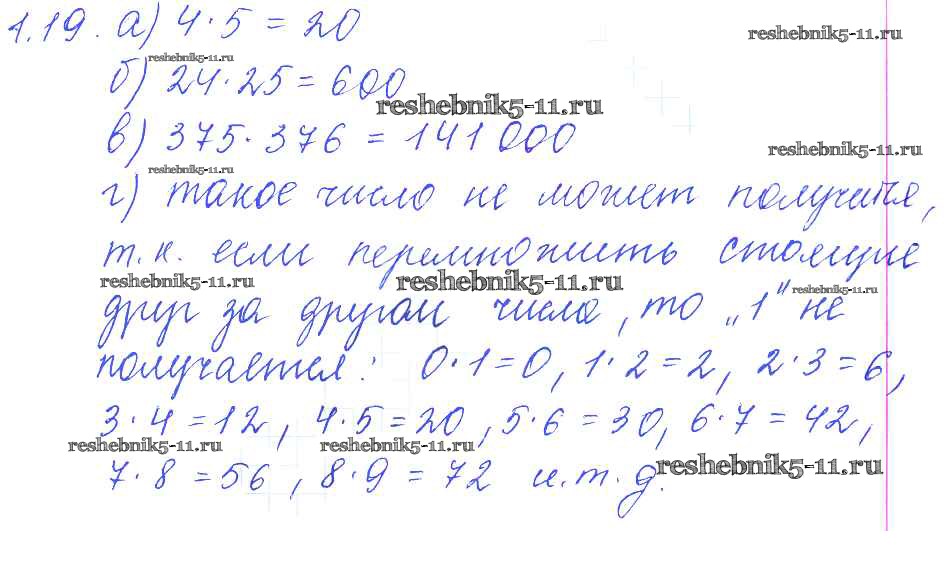 1.19. а) 4·5 = 20
reshebnik5-11.ru
reshebnik5-11.ru
б) 24·25 = 600
reshebnik5-11.ru
в) 375·376 = 141 000
reshebnik5-11.ru
reshebnik5-11.ru
г) такое число не может получиться,
т.к. если перемножить стоящие
reshebnik5-11.ru reshebnik5-11.ru reshebnik5-11.ru
друг за другом числа, то „1" не
получается: 0·1=0, 1·2=2, 2·3=6,
3·4=12, 4·5=20, 5·6=30, 6·7=42,
reshebnik5-11.ru reshebnik5-11.ru
reshebnik5-11.ru
7·8=56, 8·9=72 и.т.д.